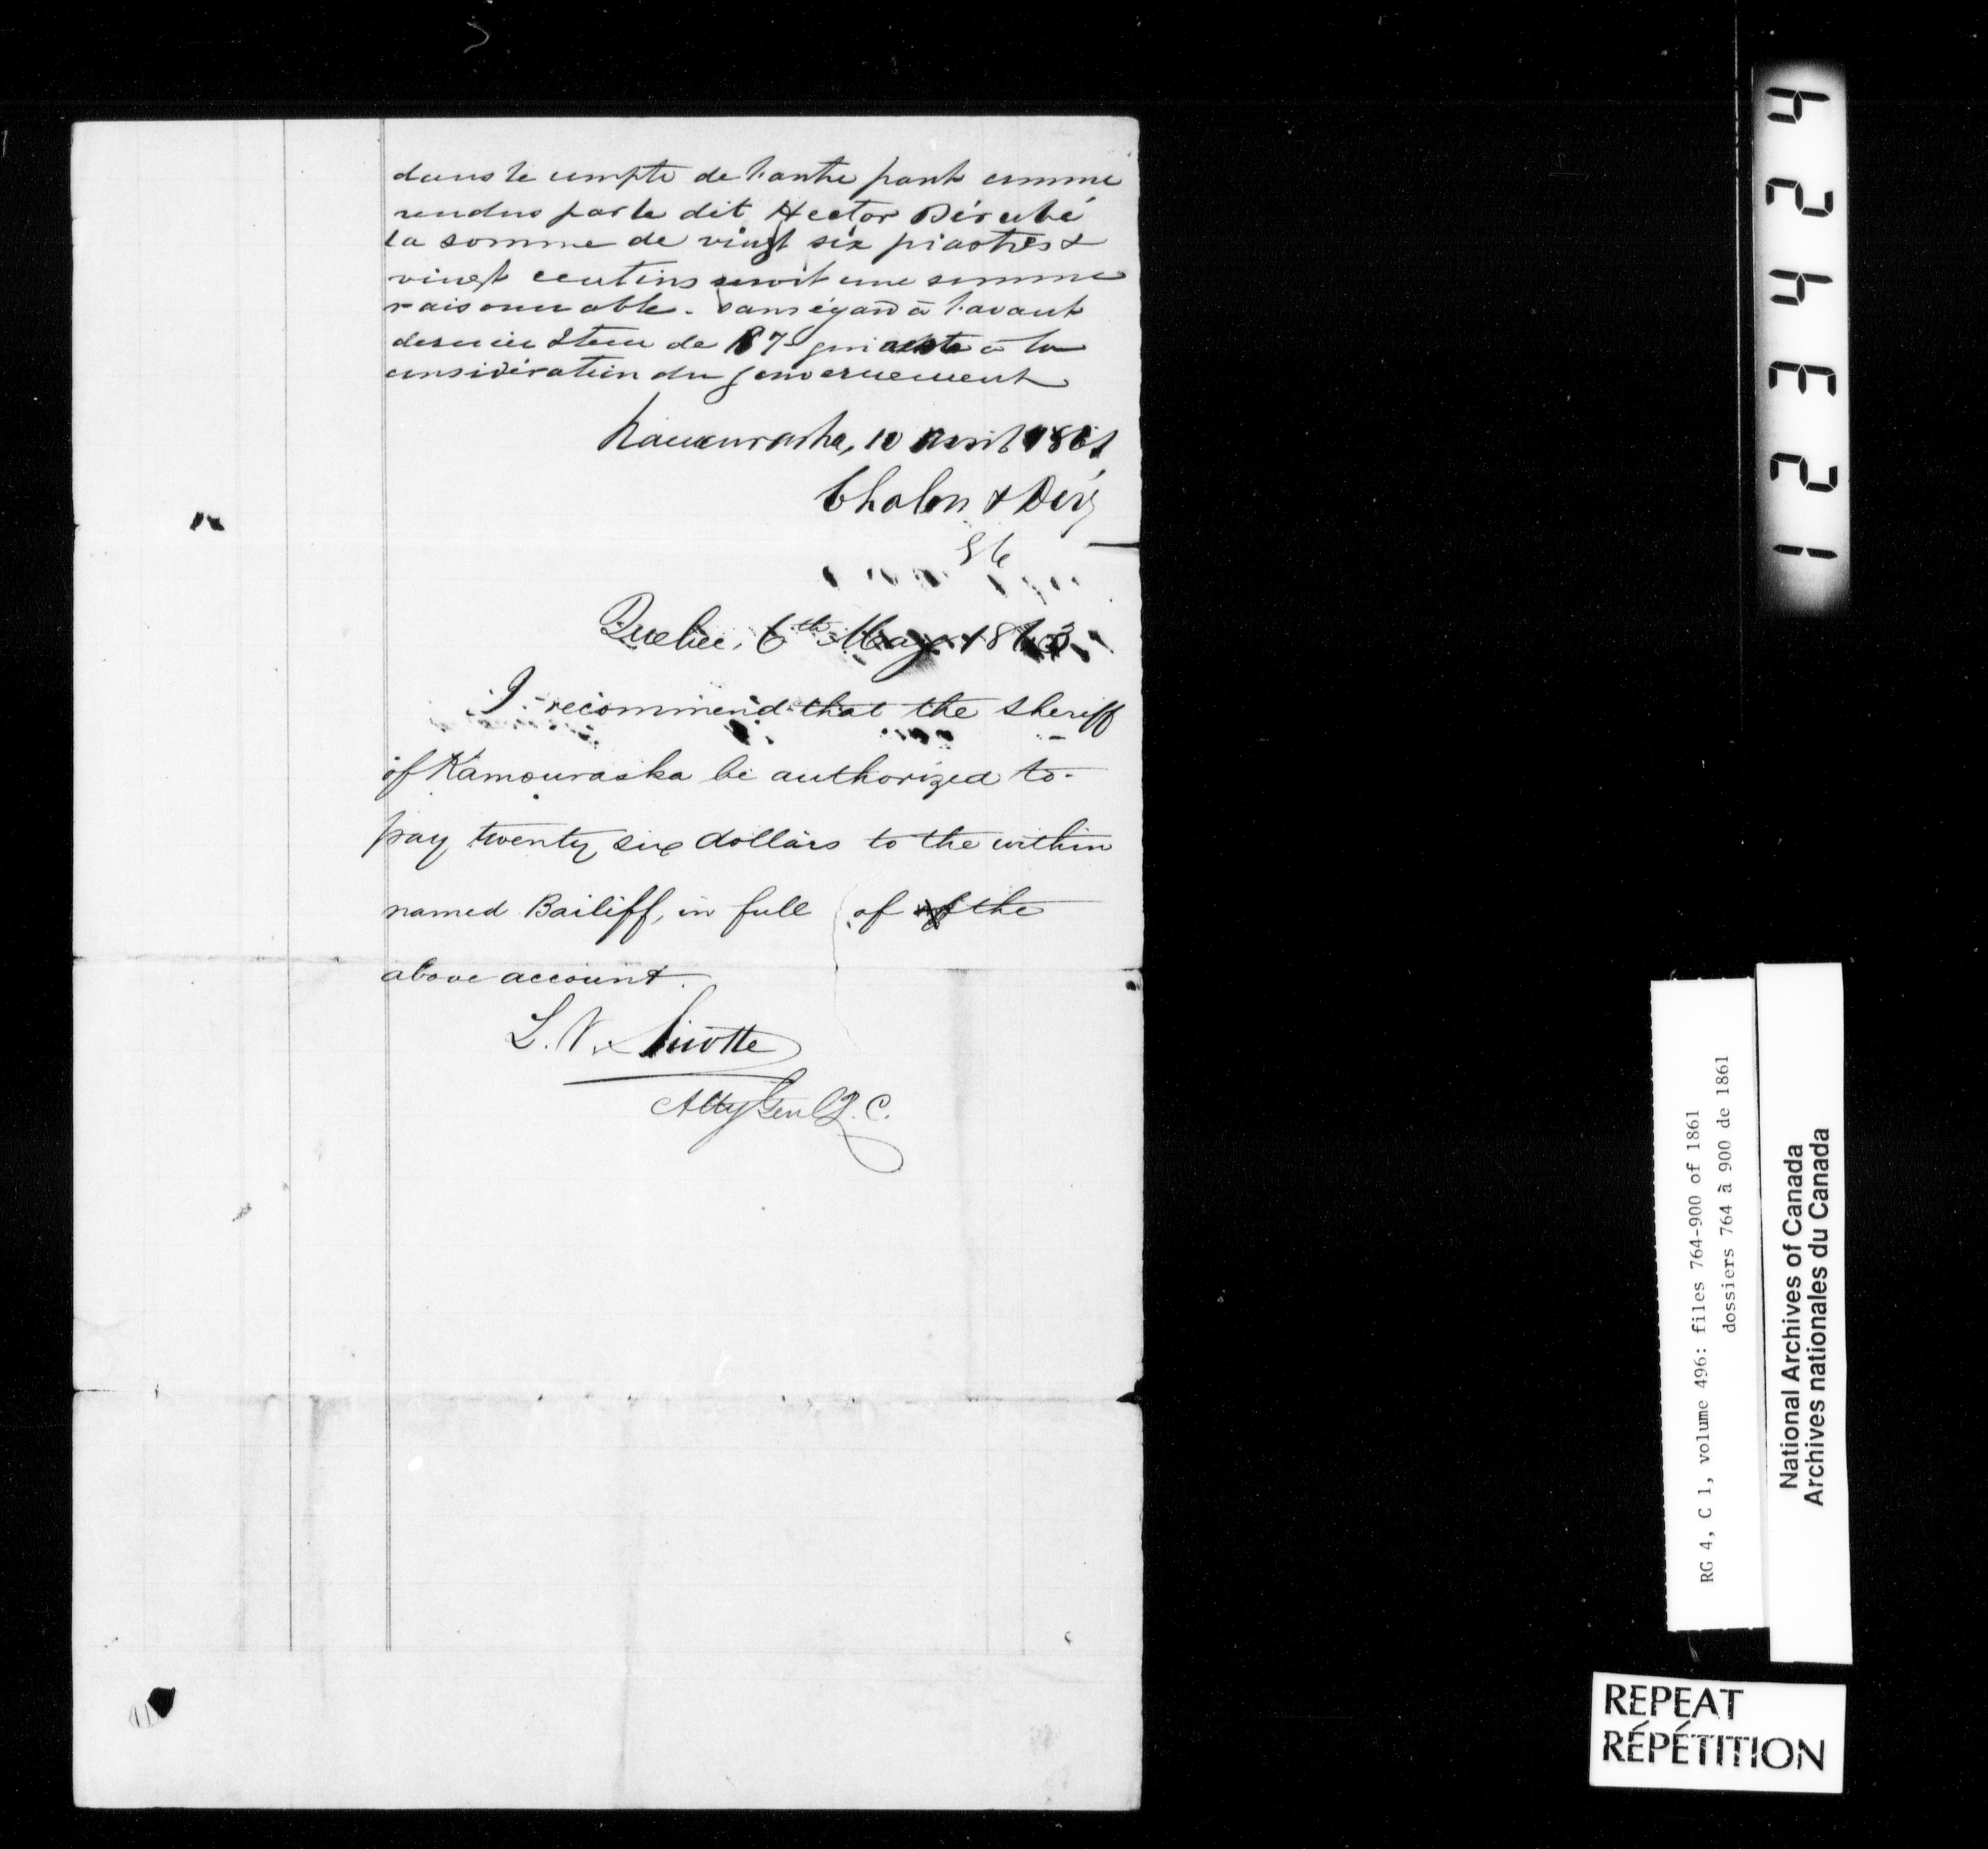 dans le compte de l'autre part comme
rendus par le dit Hector Bérubé
la somme de vingt six piastres &
vingt centins seroit une somme
raisonnable. Sans égard à l'avant
dernier Item de 87 qui reste à la
considération du gouvernement
Kamouraska, 10 Avril 1861
Chalou &
Quebec, 6th May 1863
I recommend that the Sheriff
of Kamouraska be authorized to
pay twenty six dollars to the within
named Bailiff, in full of the
above account.
L. V. Sicotte
Atty Genl L. C.
123424
RG 4, C 1, volume 496: files 764-900 of 1861
dossiers 764 à 900 de 1861
National Archives of Canada
Archives nationales du Canada
REPEAT
RÉPÉTITION